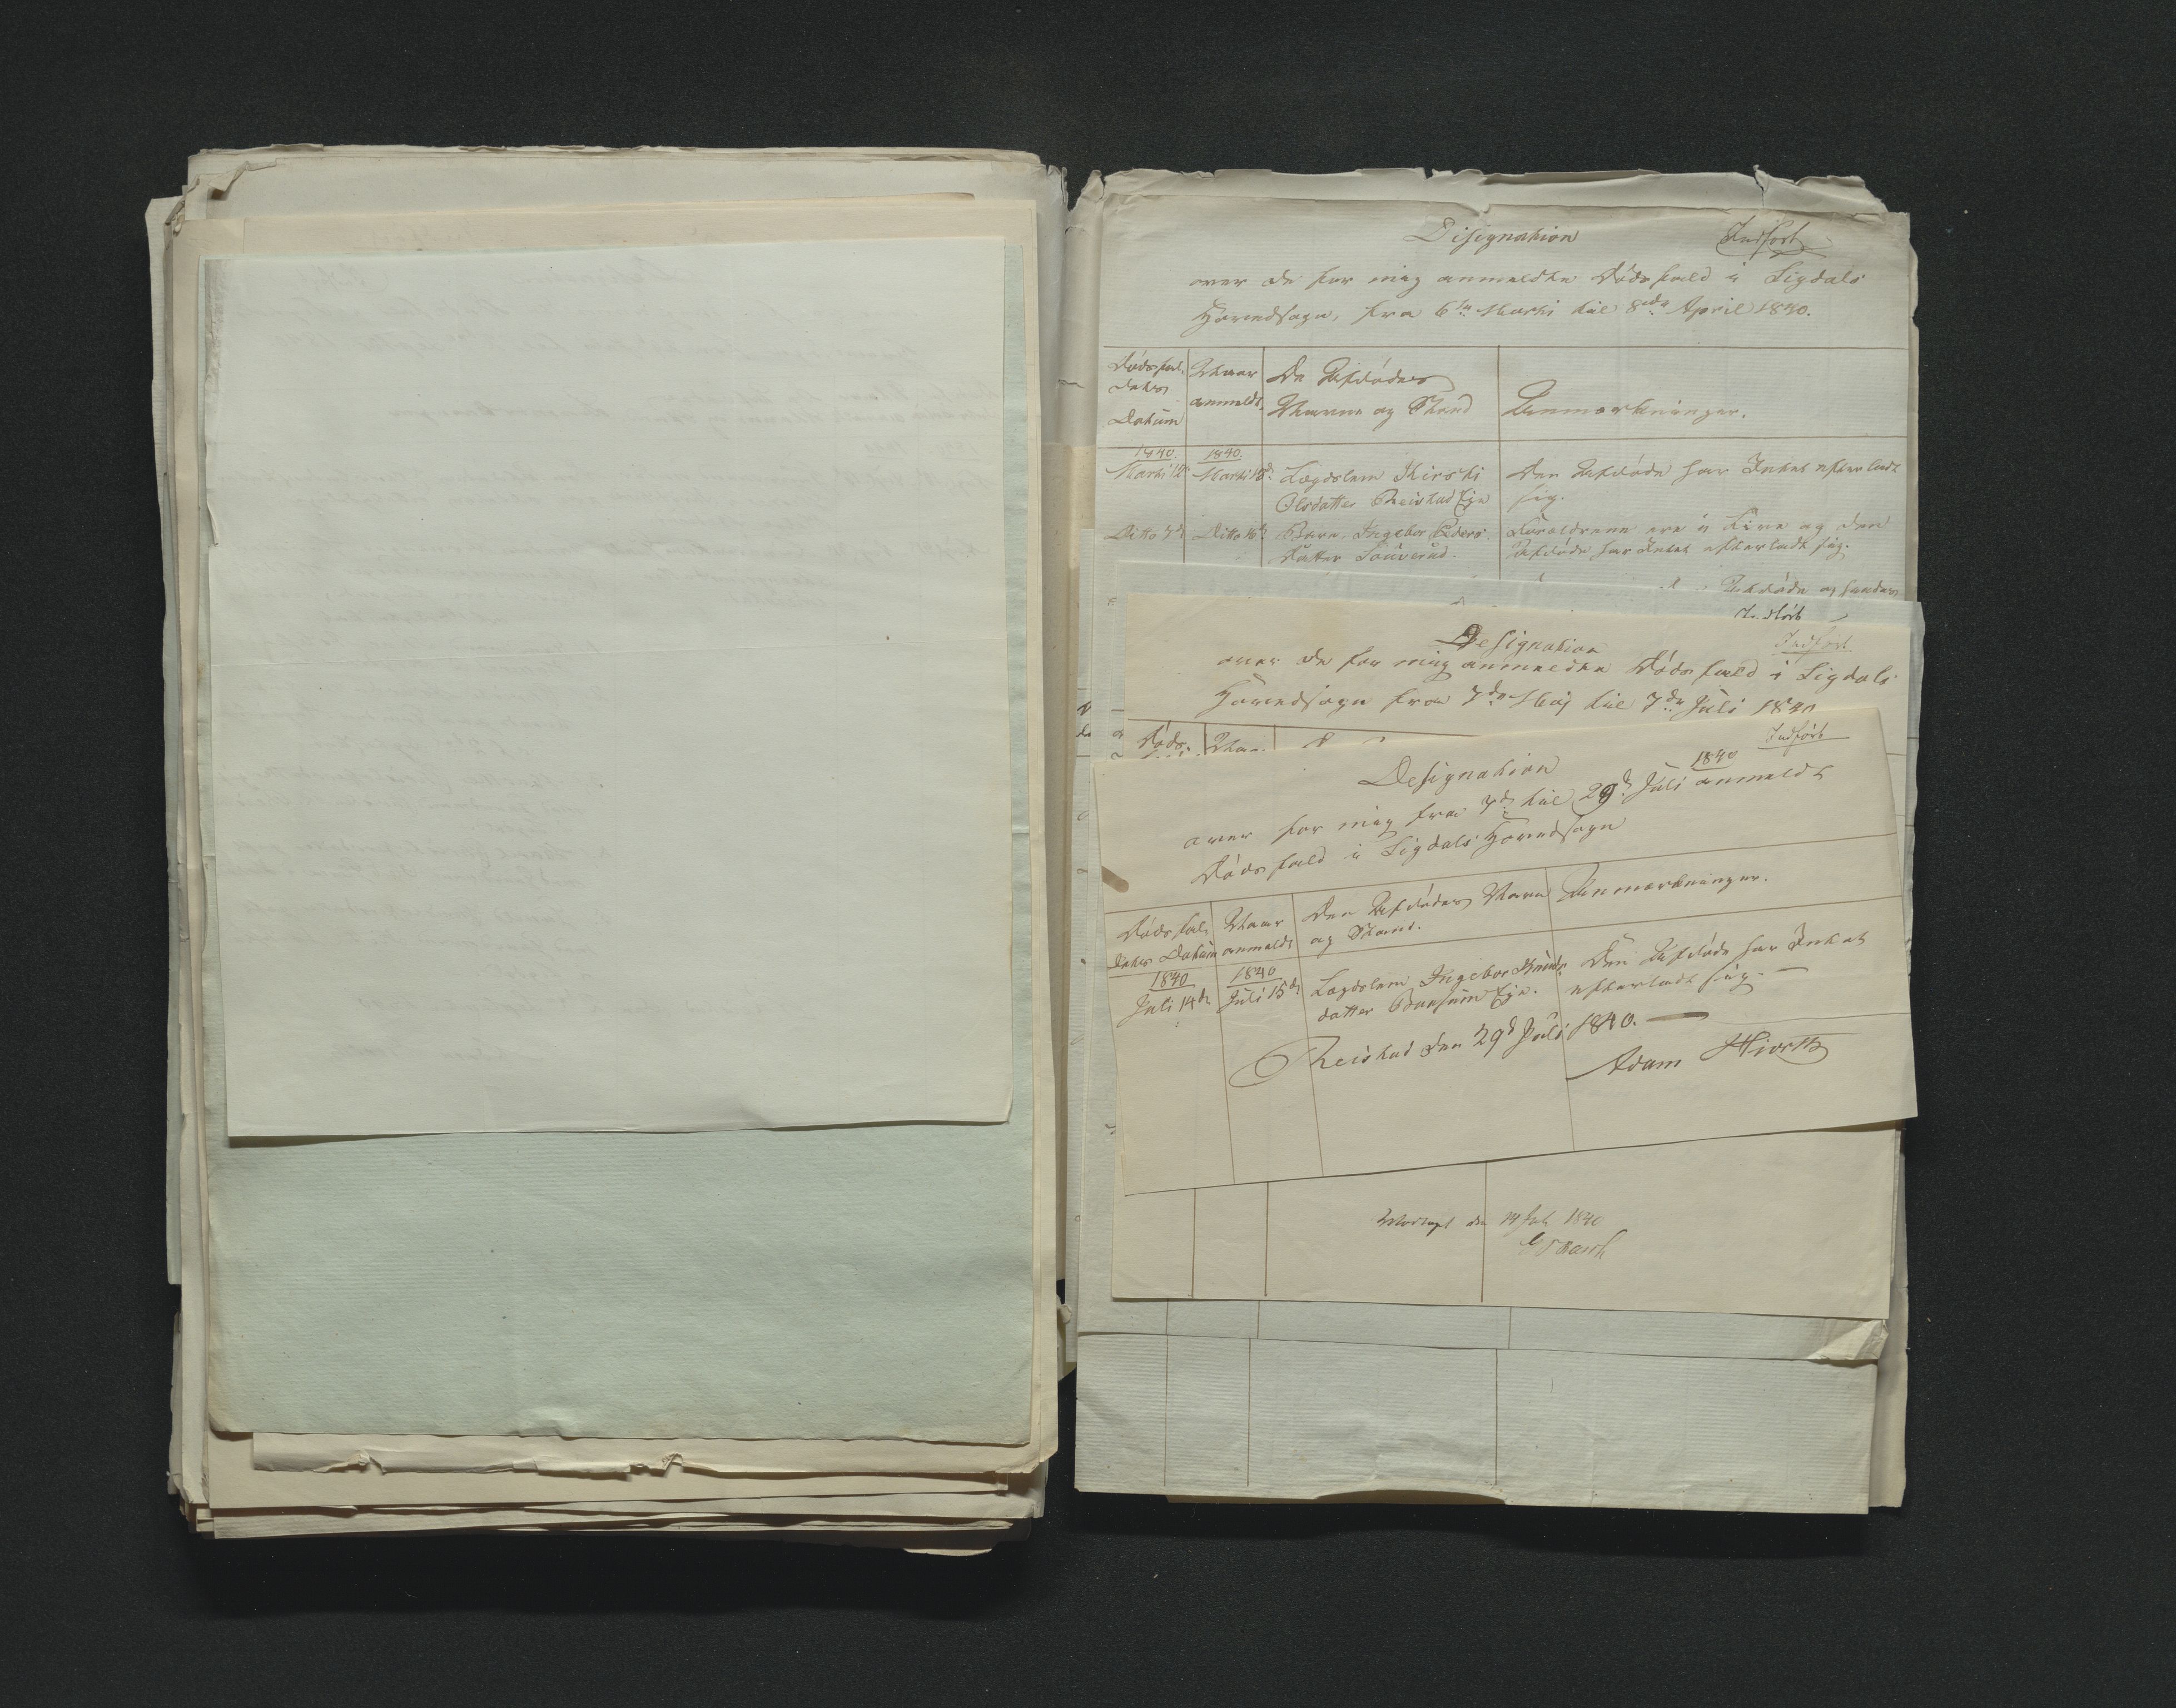 Designation
Indført
over de for mig anmeldte Dødsfald i Sigdals
Hovedsogn, fra 6te Marti til 8de April 1840.
Dødsfal-
dets
Datum
Naar
anmeldt.
De Afdødes
Navne og Stand
Anmærkninger.
1840.
Marti 12
1840.
Marti
Lægdslem Kirsti
Olsdatter Reistad Eje
Den Afdøde har Intet efterladt
sig.
Ditto 7de
Ditto 16de
Barn Ingebor Peders-
datter
Forældrene ere i Live og den
Afdøde har Intet efterladt sig.
Afdøde og hendes
Indført
Designation
Indført
over de for mig anmeldte Dødsfald i Sigdals
Hovedsogn fra 7de Maj til 7de Juli 1840
Døds-
Naar
Designation
1840
Indført
over for mig fra 7de til 29de Juli anmeldt
Dødsfald i Sigdals Hovedsogn
Dødsfal-
dets Datum
Naar
anmeldt
Den Afdødes Navn
og Stand.
Anmærkninger.
1840
Juli 14de
1840
Juli 15de
Lægdslem Ingebor Knuds-
datter Eje.
Den Afdøde har Intet
efterladt sig.
Reistad den 29de Juli 1840.
Adam Hiorth
den 14 Juli 1840